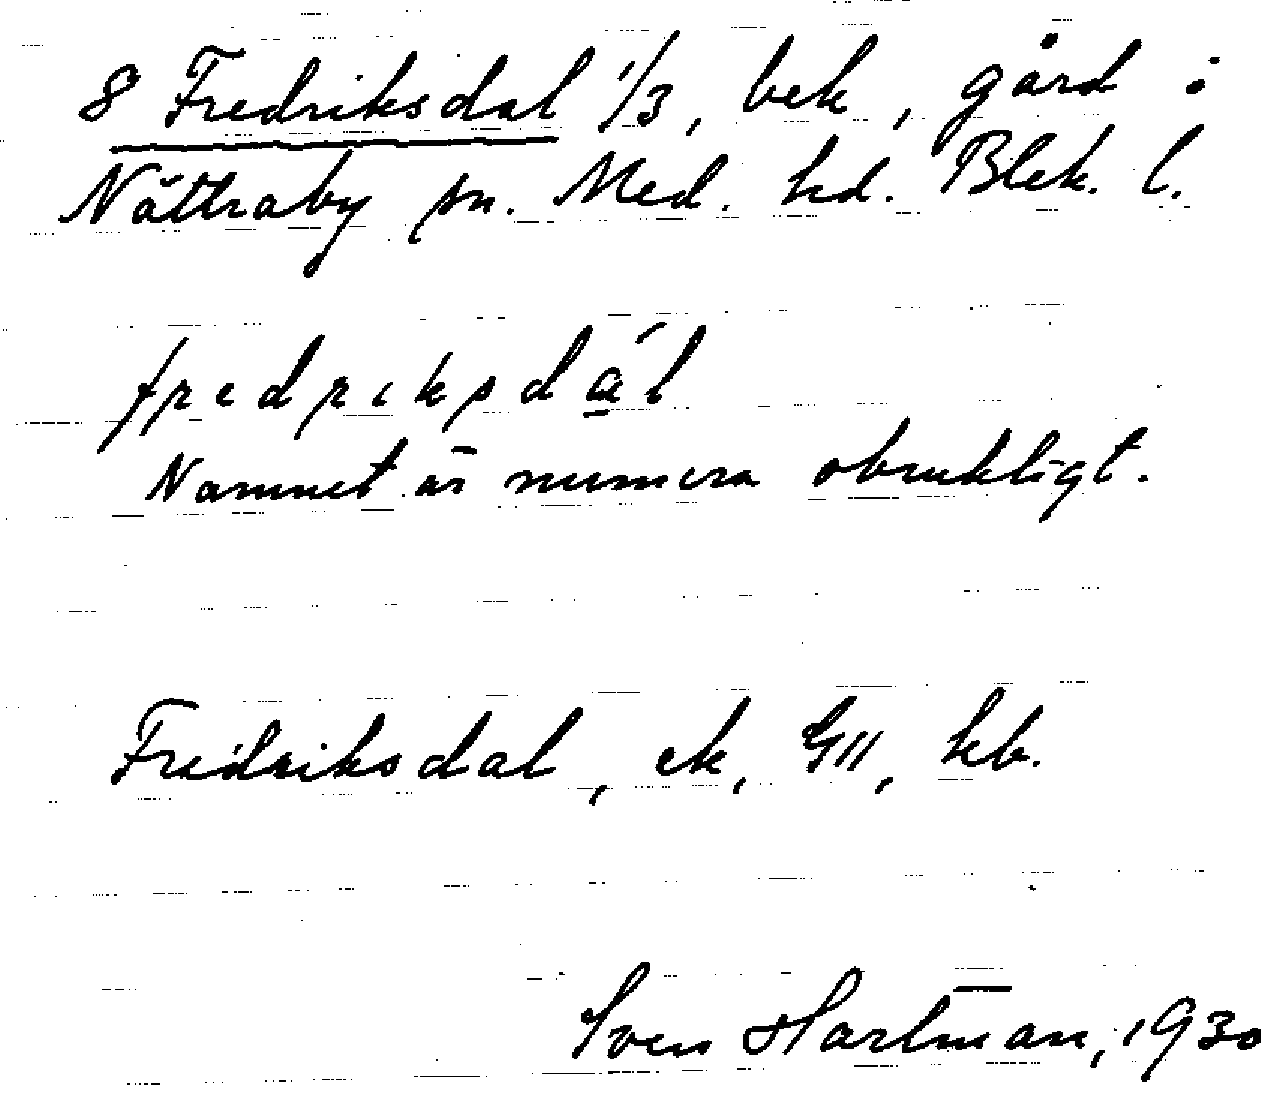 8 Fredriksdal 1/3, bek, gård i
Nättraby sn. Med. hd. Blek. l.
fredriksdál
Namnet är numera obrukligt.
Fredriksdal, ek, GII, kb.
Sven Hartman, 1930